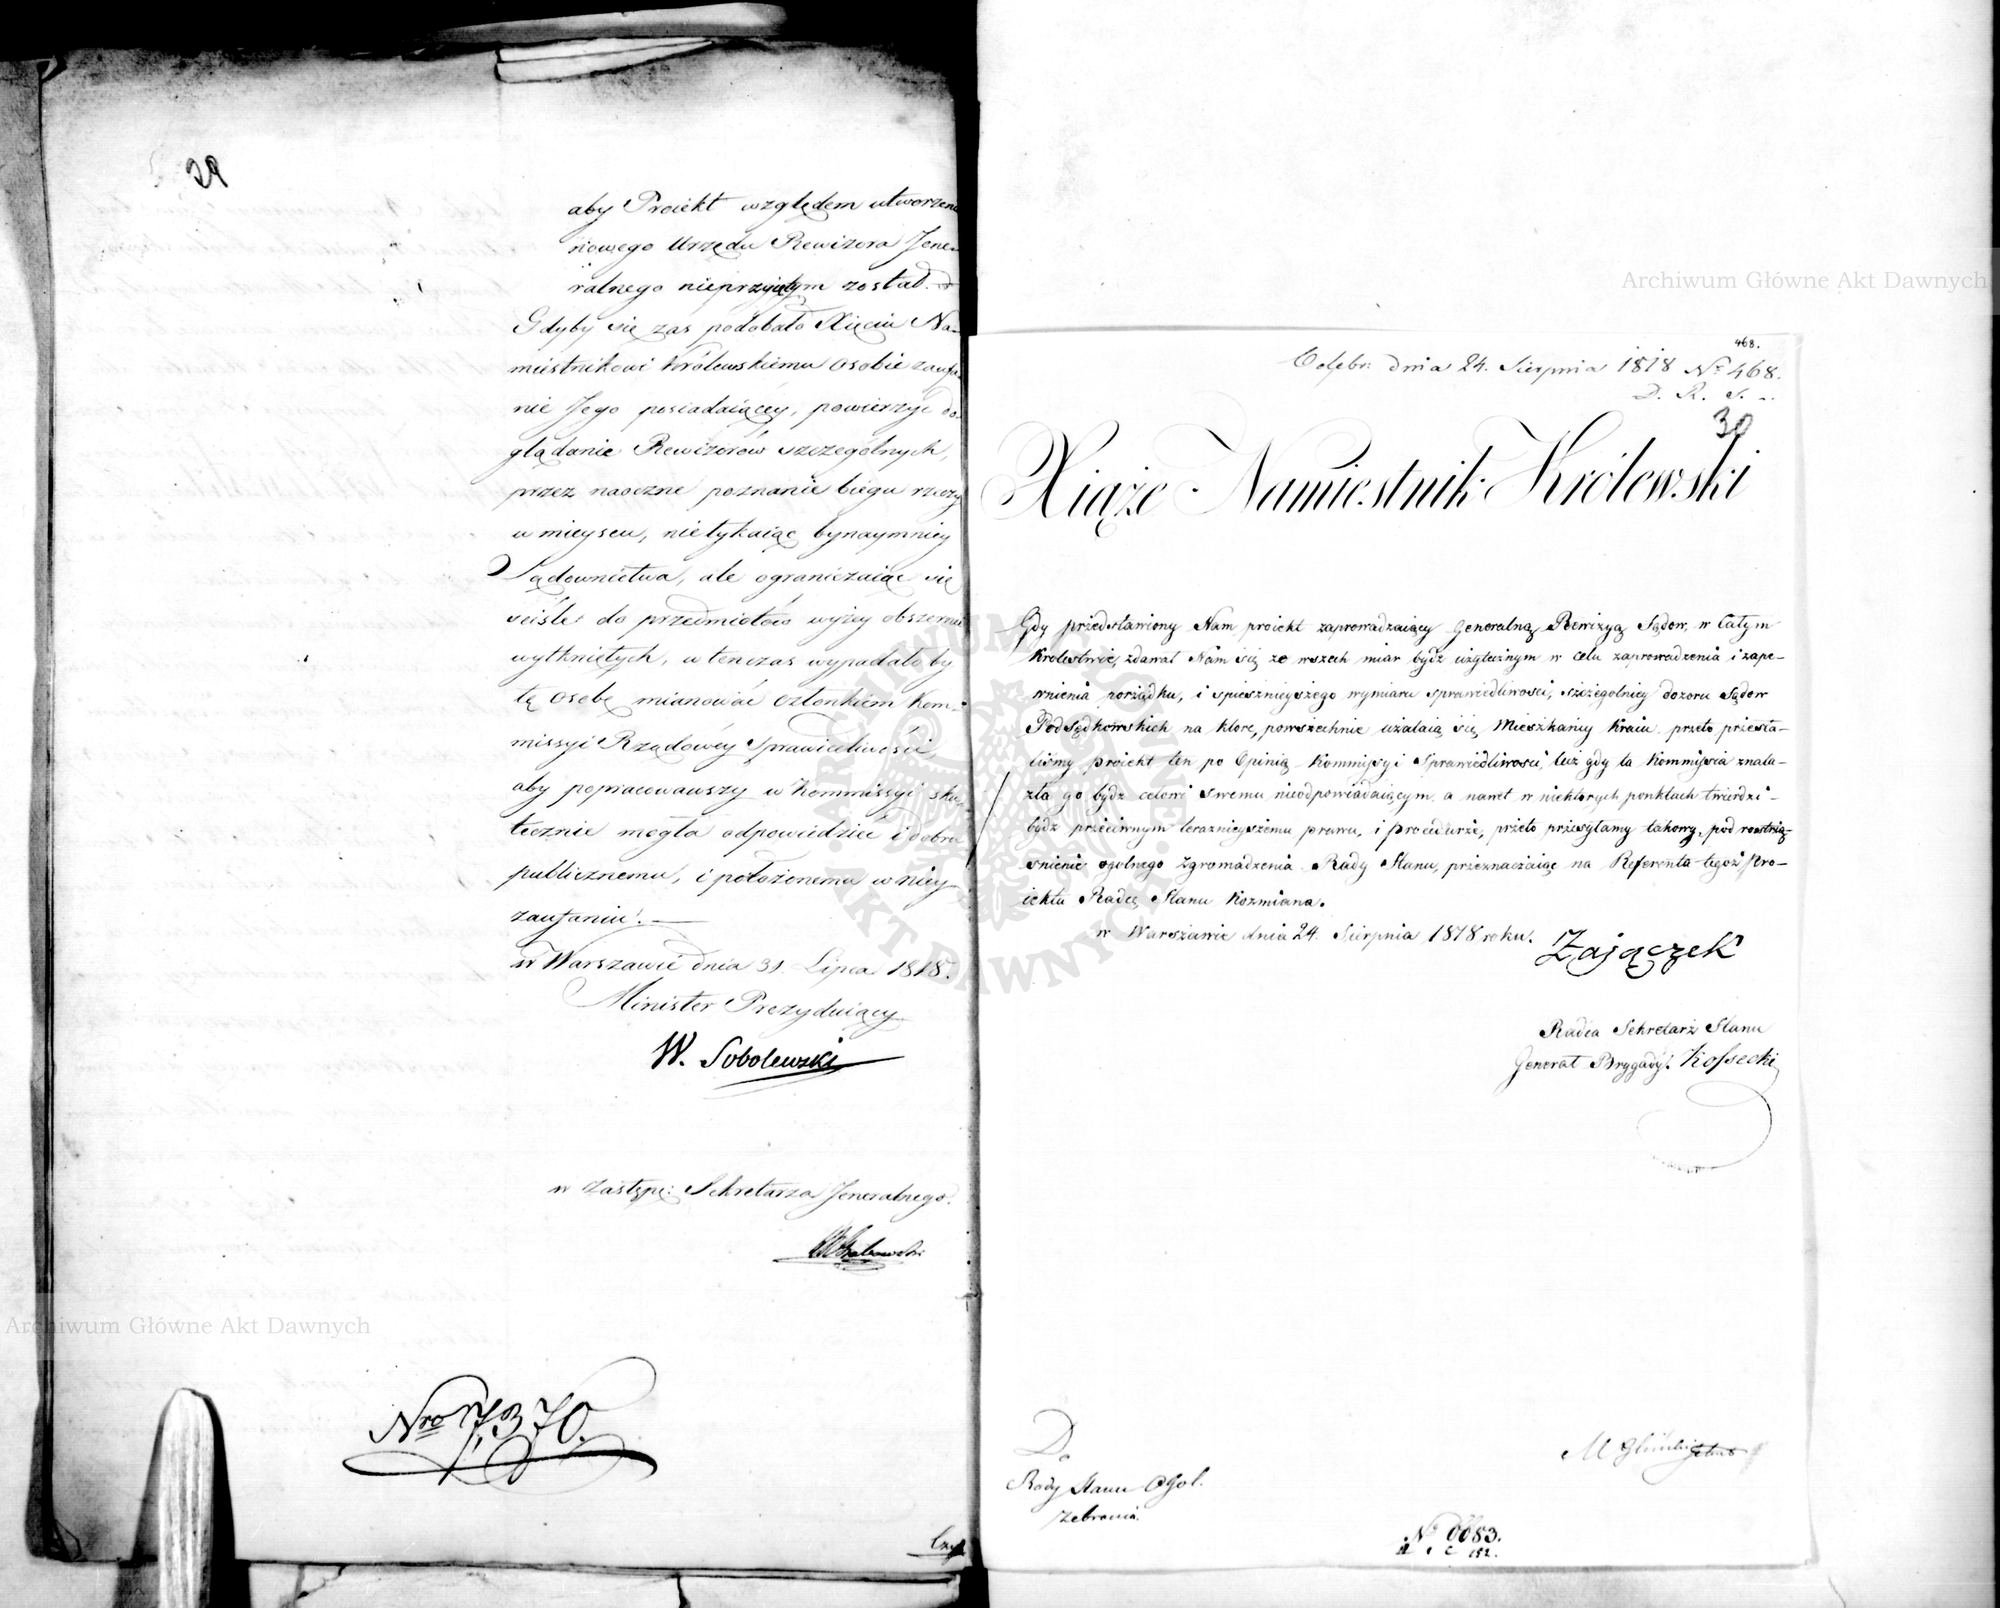 29
aby Proiekt względem utworzenia
nowego Urzędu Rewizora Jene-
ralnego nieprzyiętym został. -
Gdyby się zaś podobało Xięciu Na-
miestnikowi Królewskiemu osobie zaufa-
nie Jego posiadaiącey, powierzyć do-
glądanie Rewizorów szczególnych,
przez naoczne poznanie biegu rzeczy
w mieyscu, nietykaiąc bynaymniey
Sądownictwa, ale ograniczaiąc się
ściśle do przedmiotów wyżey obszernie
wytkniętych, w tenczas wypadało by
tę osobę mianować członkiem Kom-
missyi Rządowey Sprawiedliwości,
aby popracowawszy w Kommissyi sku-
tecznie mogła odpowiedzieć i dobru
publicznemu, i położonemu w niey
zaufaniu. —
w Warszawie dnia 31 Lipca 1818.
Minister Prezyduiący
W. Sobolewski
w Zastęp: Sekretarza Jeneralnego.
Nro 7,370.
468.
Odebr: dnia 24. Sierpnia 1818 No 468.
D. R. S. -
30
Xiąże Namiestnik Królewski
Gdy przedstawiony Nam proiekt zaprowadzaiący Generalną Rewizyą Sądow, w całym
Krolestwie, zdawał Nam się ze wszech miar bydz użytecznym w celu zaprowadzenia i zape-
wnienia porządku, i spiesznieyszego wymiaru sprawiedliwości, szczegolniey dozoru Sądow
PodSądkowskich na ktore, powszechnie użalaią się Mieszkańcy Kraiu przeto przesła-
liśmy proiekt ten po Opinią Kommissyi Sprawiedliwości, lecz gdy ta Kommissia znala-
zła go bydz celowi swemu nieodpowiadaiącym a nawet w niektorych punktach twierdzi-
bydz przeciwnym teraznieyszemu prawu, i procedurze, przeto przesyłamy takowy, pod roztrzą-
śnienie ogolnego Zgromadzenia Rady Stanu, przeznaczaiąc na Referenta tegoż Pro-
iektu Radcę Stanu Kozmiana.
w Warszawie dnia 24. Sierpnia 1818 roku.
Zajączek
Radca Sekretarz Stanu
Generał Brygady: Kossecki
Do
Rady Stanu Ogol.
Zebrania.
No 6083.
Archiwum Główne Akt Dawnych
Archiwum Główne Akt Dawnych
ARCHIWUM GŁÓWNE AKT DAWNYCH